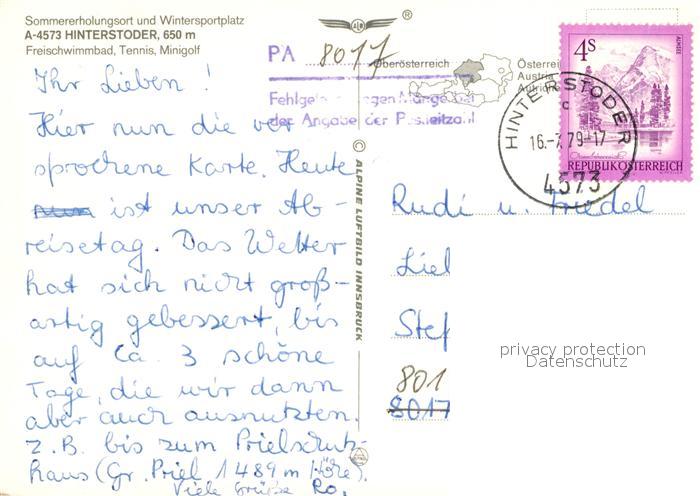 Sommererholungsort und Wintersportplatz
A-4573 HINTERSTODER, 650 m
Freischwimmbad, Tennis, Minigolf
®
Oberösterreich
Österrei
Austria
Autriche
PA 8017
Fehlgeleitet wegen Mangel bei
der Angabe der Postleitzahl
4s
ALMSEE
REPUBLIK ÖSTERREICH
HINTERSTODER
c
16.-7.79-17
4573
Ihr Lieben!
Hier nun die ver
sprochene Karte. Heute
ist unser Ab-
reisetag. Das Wetter
hat sich nicht groß-
artig gebessert, bis
auf ca. 3 schöne
Tage, die wir dann
aber auch ausnutzten.
z.B. bis zum Prielschutz-
haus (Gr. Priel 1489 m Höhe).
Viele Grüße Ro.
© ALPINE LUFTBILD INNSBRUCK
Rudi u. Friedel
Liel
Stef
801
8017
privacy protection
Datenschutz